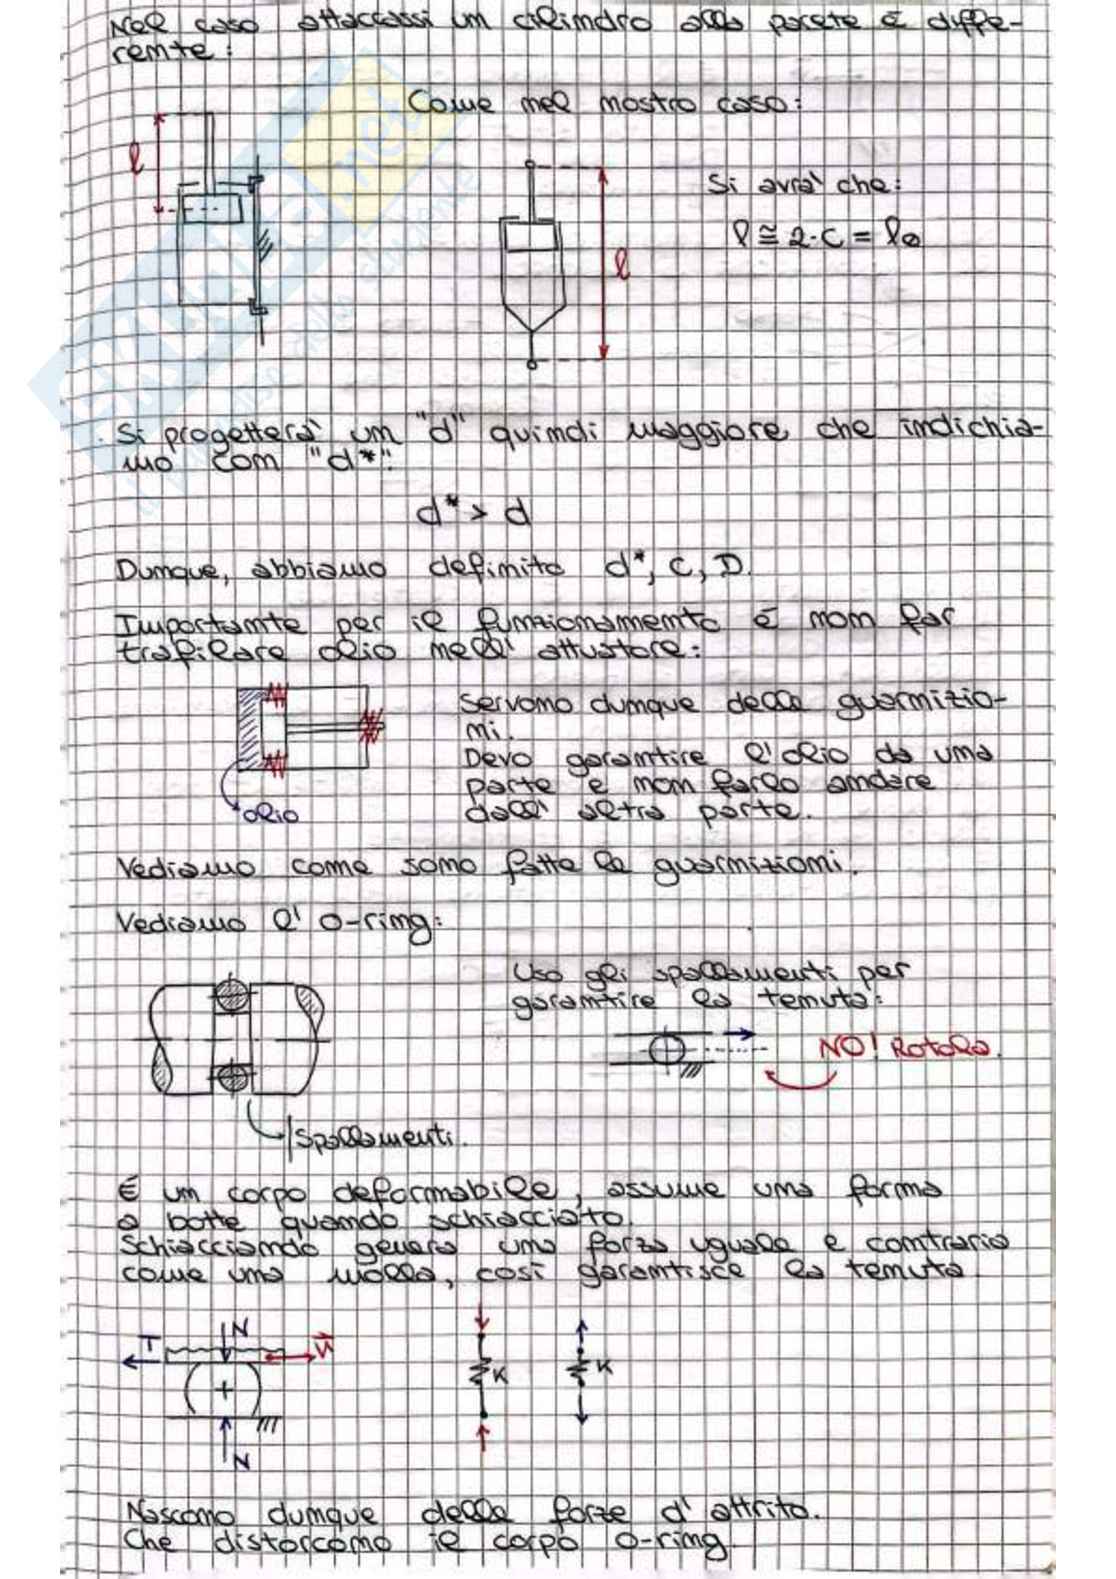 Nel caso attaccassi un cilindro alla parete è diffe-
rente:
Come nel nostro caso:
l
Si avrà che:
l
l ≅ 2·C = l₀
Si progetterà un "d" quindi maggiore che indichia-
mo con "d*".
d* > d
Dunque, abbiamo definito d*, C, D.
Importante per il funzionamento è non far
trafilare olio nell' attuatore:
Servono dunque delle guarnizio-
ni.
Devo garantire l'olio da una
parte e non farlo andare
dall' altra parte.
olio
Vediamo come sono fatte le guarnizioni.
Vediamo l' O-ring:
Uso gli spallamenti per
garantire la tenuta:
NO! Rotola.
Spallamenti.
È un corpo deformabile, assume una forma
a botte quando schiacciato.
Schiacciando genera una forza uguale e contraria
come una molla, così garantisce la tenuta.
T N V
K K
N
Nascono dunque delle forze d' attrito.
Che distorcono il corpo O-ring.